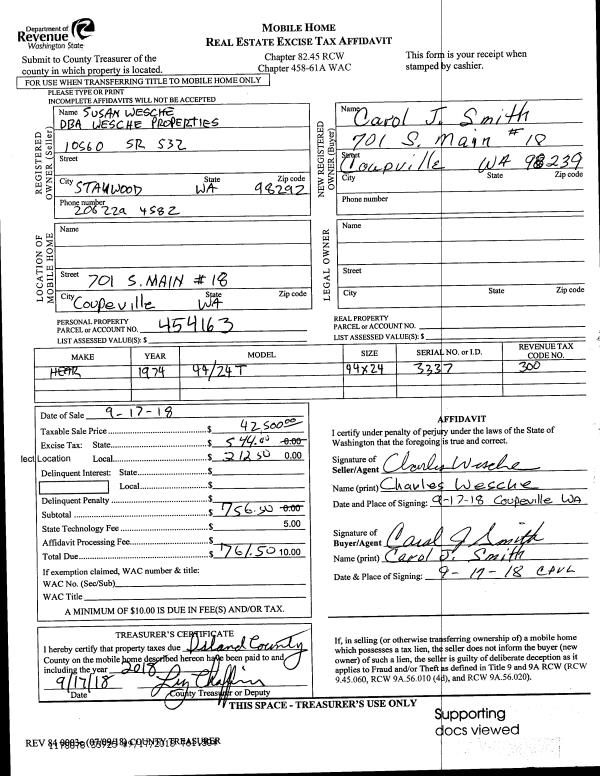 Department of
Revenue
Washington State
MOBILE HOME
REAL ESTATE EXCISE TAX AFFIDAVIT
Submit to County Treasurer of the
county in which property is located.
Chapter 82.45 RCW
Chapter 458-61A WAC
This form is your receipt when
stamped by cashier.
FOR USE WHEN TRANSFERRING TITLE TO MOBILE HOME ONLY
PLEASE TYPE OR PRINT
INCOMPLETE AFFIDAVITS WILL NOT BE ACCEPTED
REGISTERED
OWNER (Seller)
Name SUSAN WESCHE
DBA WESCHE PROPERTIES
10560 SR 532
Street
City STANWOOD State WA Zip code 98292
Phone number
206 229 4582
NEW REGISTERED
OWNER (Buyer)
Name Carol J. Smith
701 S. Main #18
Street
Coupville WA 98239
City State Zip code
Phone number
LOCATION OF
MOBILE HOME
Name
Street 701 S. MAIN # 18
City Coupeville State WA Zip code
LEGAL OWNER
Name
Street
City State Zip code
PERSONAL PROPERTY
PARCEL or ACCOUNT NO. 454163
LIST ASSESSED VALUE(S): $
REAL PROPERTY
PARCEL or ACCOUNT NO.
LIST ASSESSED VALUE(S): $
MAKE YEAR MODEL SIZE SERIAL NO. or I.D. REVENUE TAX CODE NO.
1974 44/24 T 44x24 3337 300
Date of Sale 9-17-18
Taxable Sale Price $ 42,500.00
Excise Tax: State $ 544.00 0.00
lect Location Local $ 212.50 0.00
Delinquent Interest: State $
Local $
Delinquent Penalty $
Subtotal $ 756.50 0.00
State Technology Fee $ 5.00
Affidavit Processing Fee $
Total Due $ 761.50 10.00
If exemption claimed, WAC number & title:
WAC No. (Sec/Sub)
WAC Title
A MINIMUM OF $10.00 IS DUE IN FEE(S) AND/OR TAX.
AFFIDAVIT
I certify under penalty of perjury under the laws of the State of
Washington that the foregoing is true and correct.
Signature of
Seller/Agent Charles Wesche
Name (print) Charles Wesche
Date and Place of Signing: 9-17-18 Coupeville WA
Signature of
Buyer/Agent Carol J Smith
Name (print) Carol J. Smith
Date & Place of Signing: 9-17-18 CPVL
TREASURER'S CERTIFICATE
I hereby certify that property taxes due Island County
County on the mobile home described hereon have been paid to and
including the year 2018
9/17/18
Date County Treasurer or Deputy
If, in selling (or otherwise transferring ownership of) a mobile home
which possesses a tax lien, the seller does not inform the buyer (new
owner) of such a lien, the seller is guilty of deliberate deception as it
applies to Fraud and/or Theft as defined in Title 9 and 9A RCW (RCW
9.45.060, RCW 9A.56.010 (4d), and RCW 9A.56.020).
THIS SPACE - TREASURER'S USE ONLY
Supporting
docs viewed
REV 84 0003e (07/09/18) COUNTY TREASURER